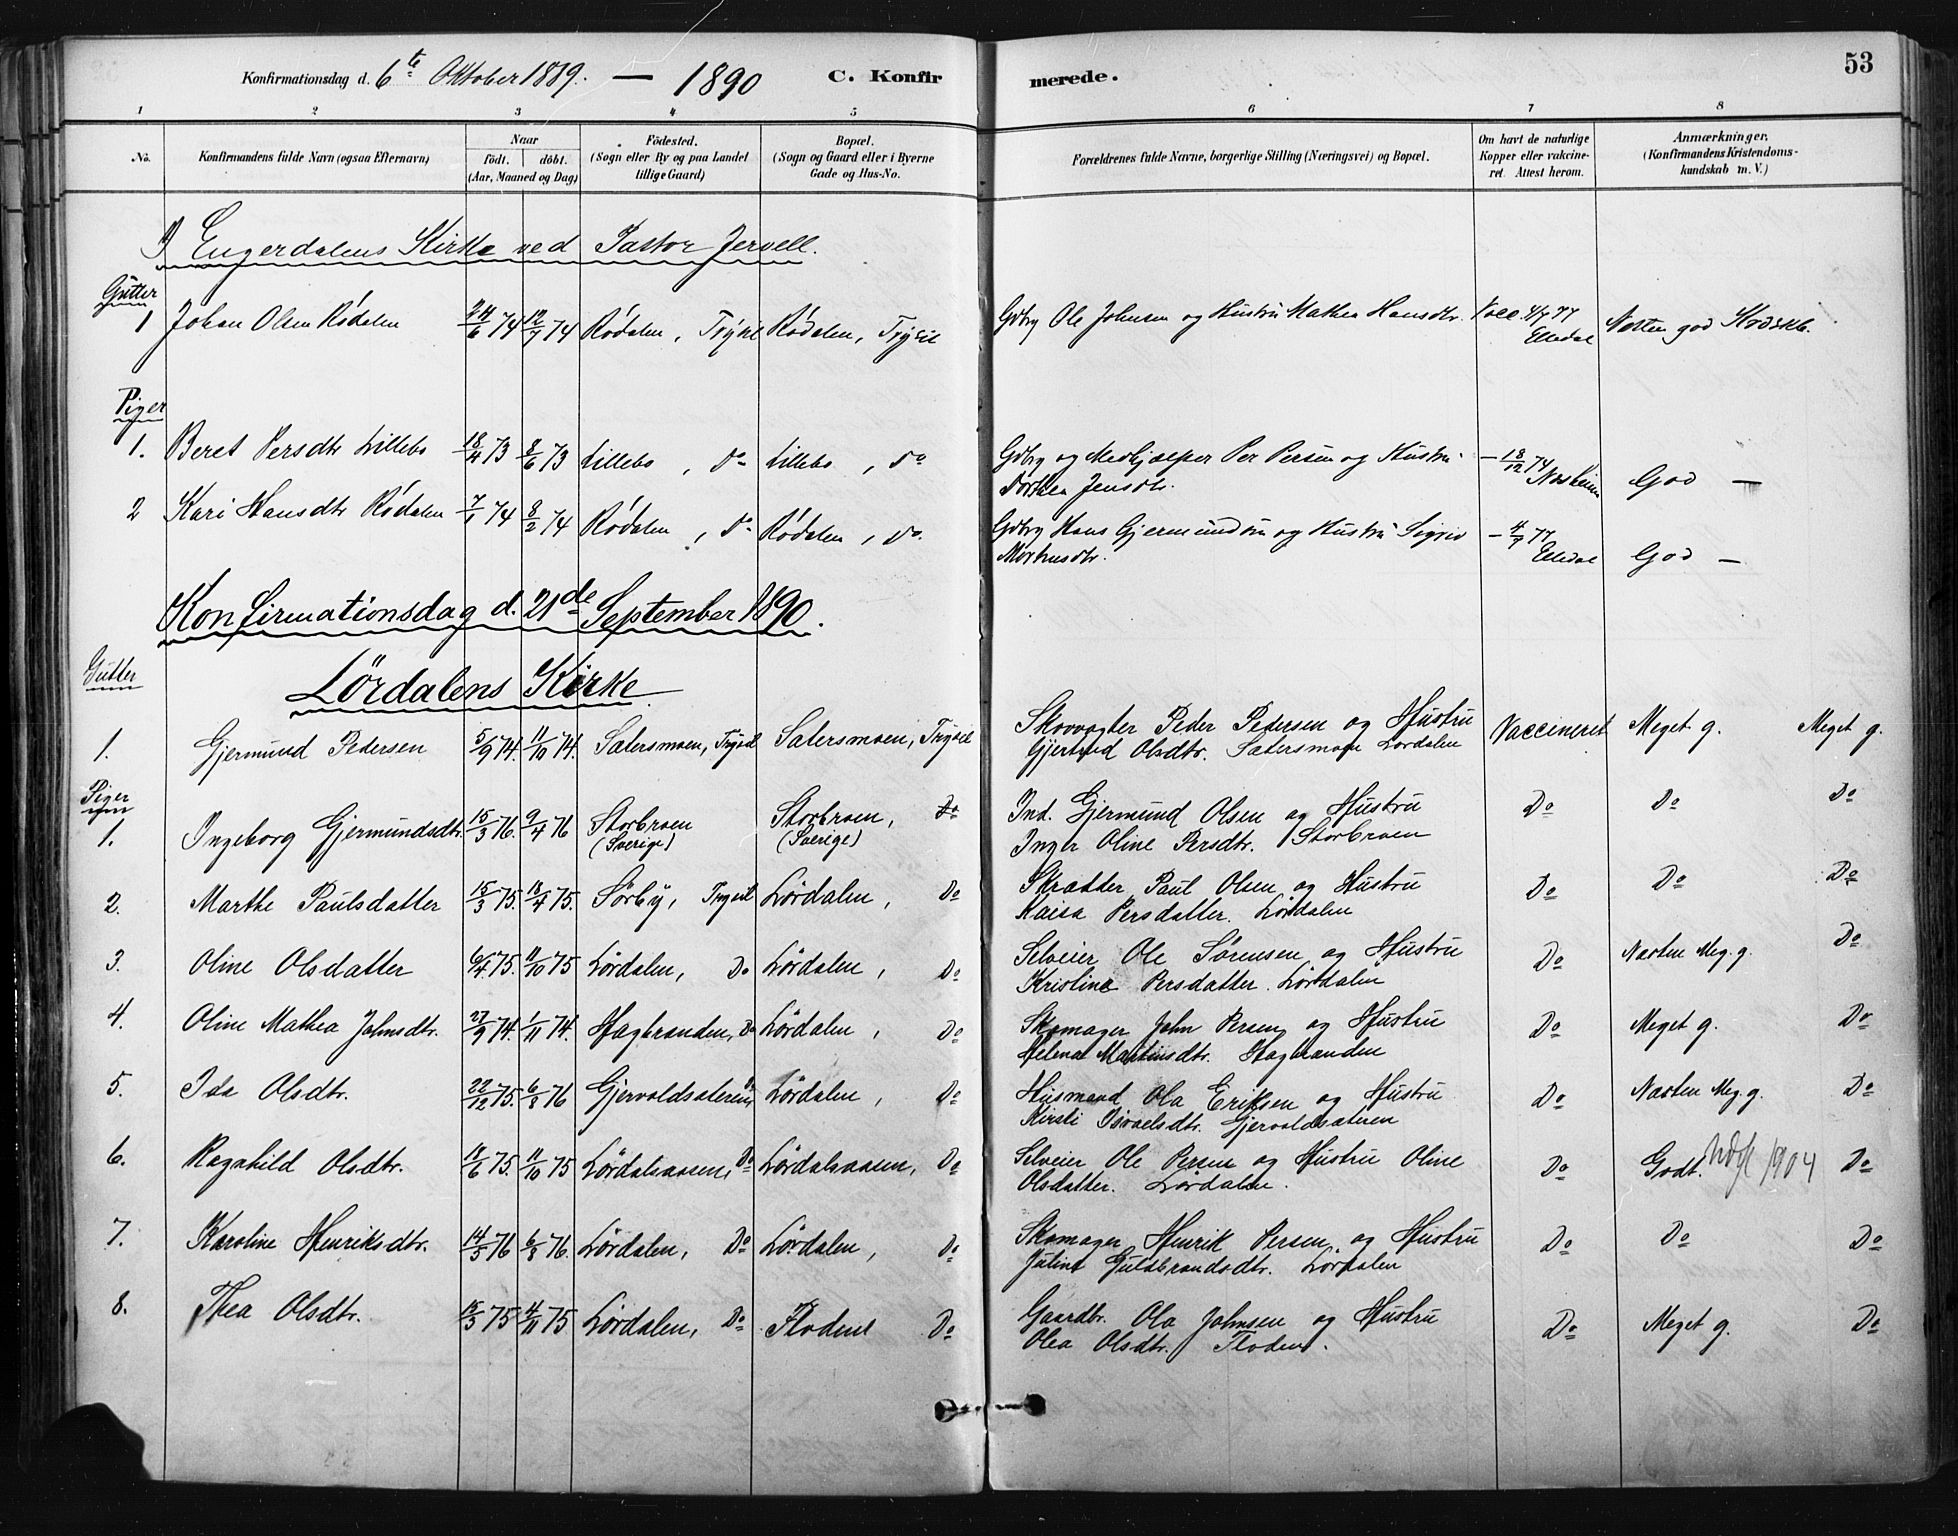 Konfirmationsdag d. 6te Oktober 1889. — 1890 C. Konfirmerede. 53
1 2 3 4 5 6 7 8
No. Konfirmandens fulde Navn (ogsaa Efternavn) Naar födt. döbt. (Aar, Maaned og Dag) Födested. (Sogn eller By og paa Landet tillige Gaard) Bopæl. (Sogn og Gaard eller i Byerne Gade og Hus-No. Forældrenes fulde Navne, borgerlige Stilling (Næringsvei) og Bopæl. Om havt de naturlige Kopper eller vakcineret. Attest herom. Anmærkninger. (Konfirmandens Kristendomskundskab m. V.)
I Engerdalens Kirke ved Pastor Jervell.
Gutter
1 Johan Olsen Rödalen 24/6 74 12/7 74 Rödalen, Trysil Rödalen, Trysil Gdbrg Ole Johnsen og Hustru Mathea Hansdtr. Vacc 4/7 77 Elledal Næsten god Krdskb.
Piger
1. Beret Persdtr Lillebo 18/4 73 8/6 73 Lillebo, Do Lillebo, Do Gdbrg og Medhjælper Per Persen og Hustru
Dorthea Jensdtr. – 18/12 74 God —
2 Kari Hansdtr Rödalen 7/1 74 8/2 74 Rödalen, Do Rödalen, Do. Gdbrg Hans Gjermundsen og Hustru Sigrid
– 4/7 77 Elledal God —
Konfirmationsdag d. 21de September 1890.
Gutter
Lördalens Kirke
1. Gjermund Pedersen 5/9 74. 11/10 74. Sætersmoen, Trysil Sætersmoen, Trysil Skovvogter Peder Pedersen og Hustru
Gjertrud Olsdtr. Sætersmoen Lördalen Vaccineret Meget g. Meget g.
Piger
1. Ingeborg Gjermundsdtr. 15/3 76. 9/4 76 Storbroen (Sverige) Storbroen, (Sverige) Do Ind. Gjermund Olsen og Hustru
Inger Oline Persdtr. Storbroen Do Do Do
2. Marthe Paulsdatter 15/3 75. 18/4 75. Sörby, Trysil Lördalen, Do Skrædder Paul Olsen og Hustru
Kaisa Persdatter. Lördalen Do Do Do
3. Oline Olsdatter 6/4 75. 11/10 75 Lördalen, Do Lördalen, Do Selveier Ole Sörensen og Hustru
Kristine Persdatter. Lördalen Do Næsten Meg. g. Do
4. Oline Mathea Johnsdtr. 27/9 74. 1/11 74. Hagbranden, Do Lördalen, Do Skomager John Persen og Hustru
Helena Martinsdtr. Hagbranden Do Meget g. Do
5. Ida Olsdtr. 22/12 75. 6/8 76 Gjervoldsæteren, Do Lördalen, Do Husmand Ola Eriksen og Hustru
Kirsti Isvaelsdtr. Gjervoldsæteren Do Næsten Meg. g. Do
6. Ragnhild Olsdtr. 18/6 75. 11/10 75 Lördalsaasen, Do Lördalsaasen, Do Selveier Ole Persen og Hustru Oline
Olsdatter. Lördalen. Do Godt. Udfl 1904 Do
7. Karoline Henriksdtr. 14/5 76 6/8 76. Lördalen, Do Lördalen, Do Skomager Henrik Persen og Hustru
Juline Guldbrandsdtr. Lördalen Do Do Do
8. Thea Olsdtr. 15/3 75 4/11 75 Lördalen, Do Flodene Do Gaardbr. Ola Johnsen og Hustru
Olea Olsdtr. Floden. Do Meget g. Do